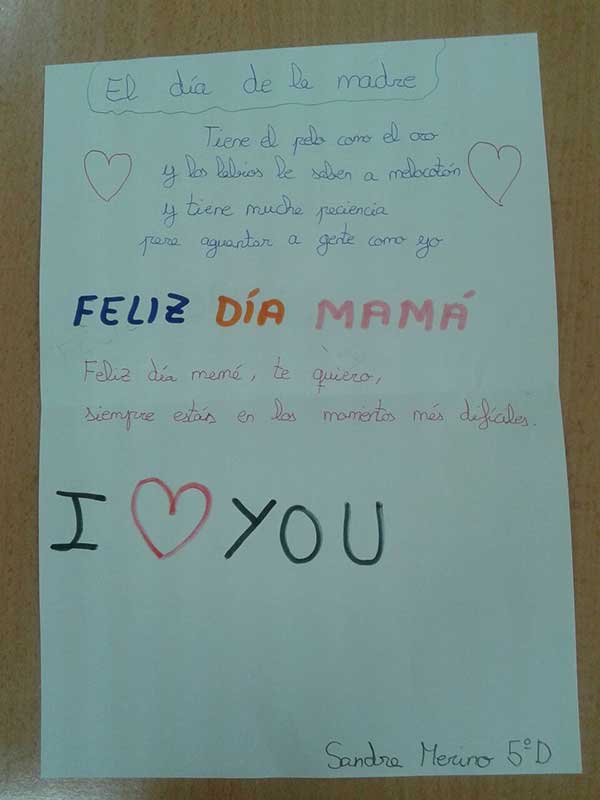 El día de la madre
Tiene el pelo como el oro
y los labios le saben a melocotón
y tiene mucha paciencia
para aguantar a gente como yo
FELIZ DÍA MAMÁ
Feliz día mamá, te quiero,
siempre estás en los momentos más difíciles.
I ♡ YOU
Sandra Merino 5ºD